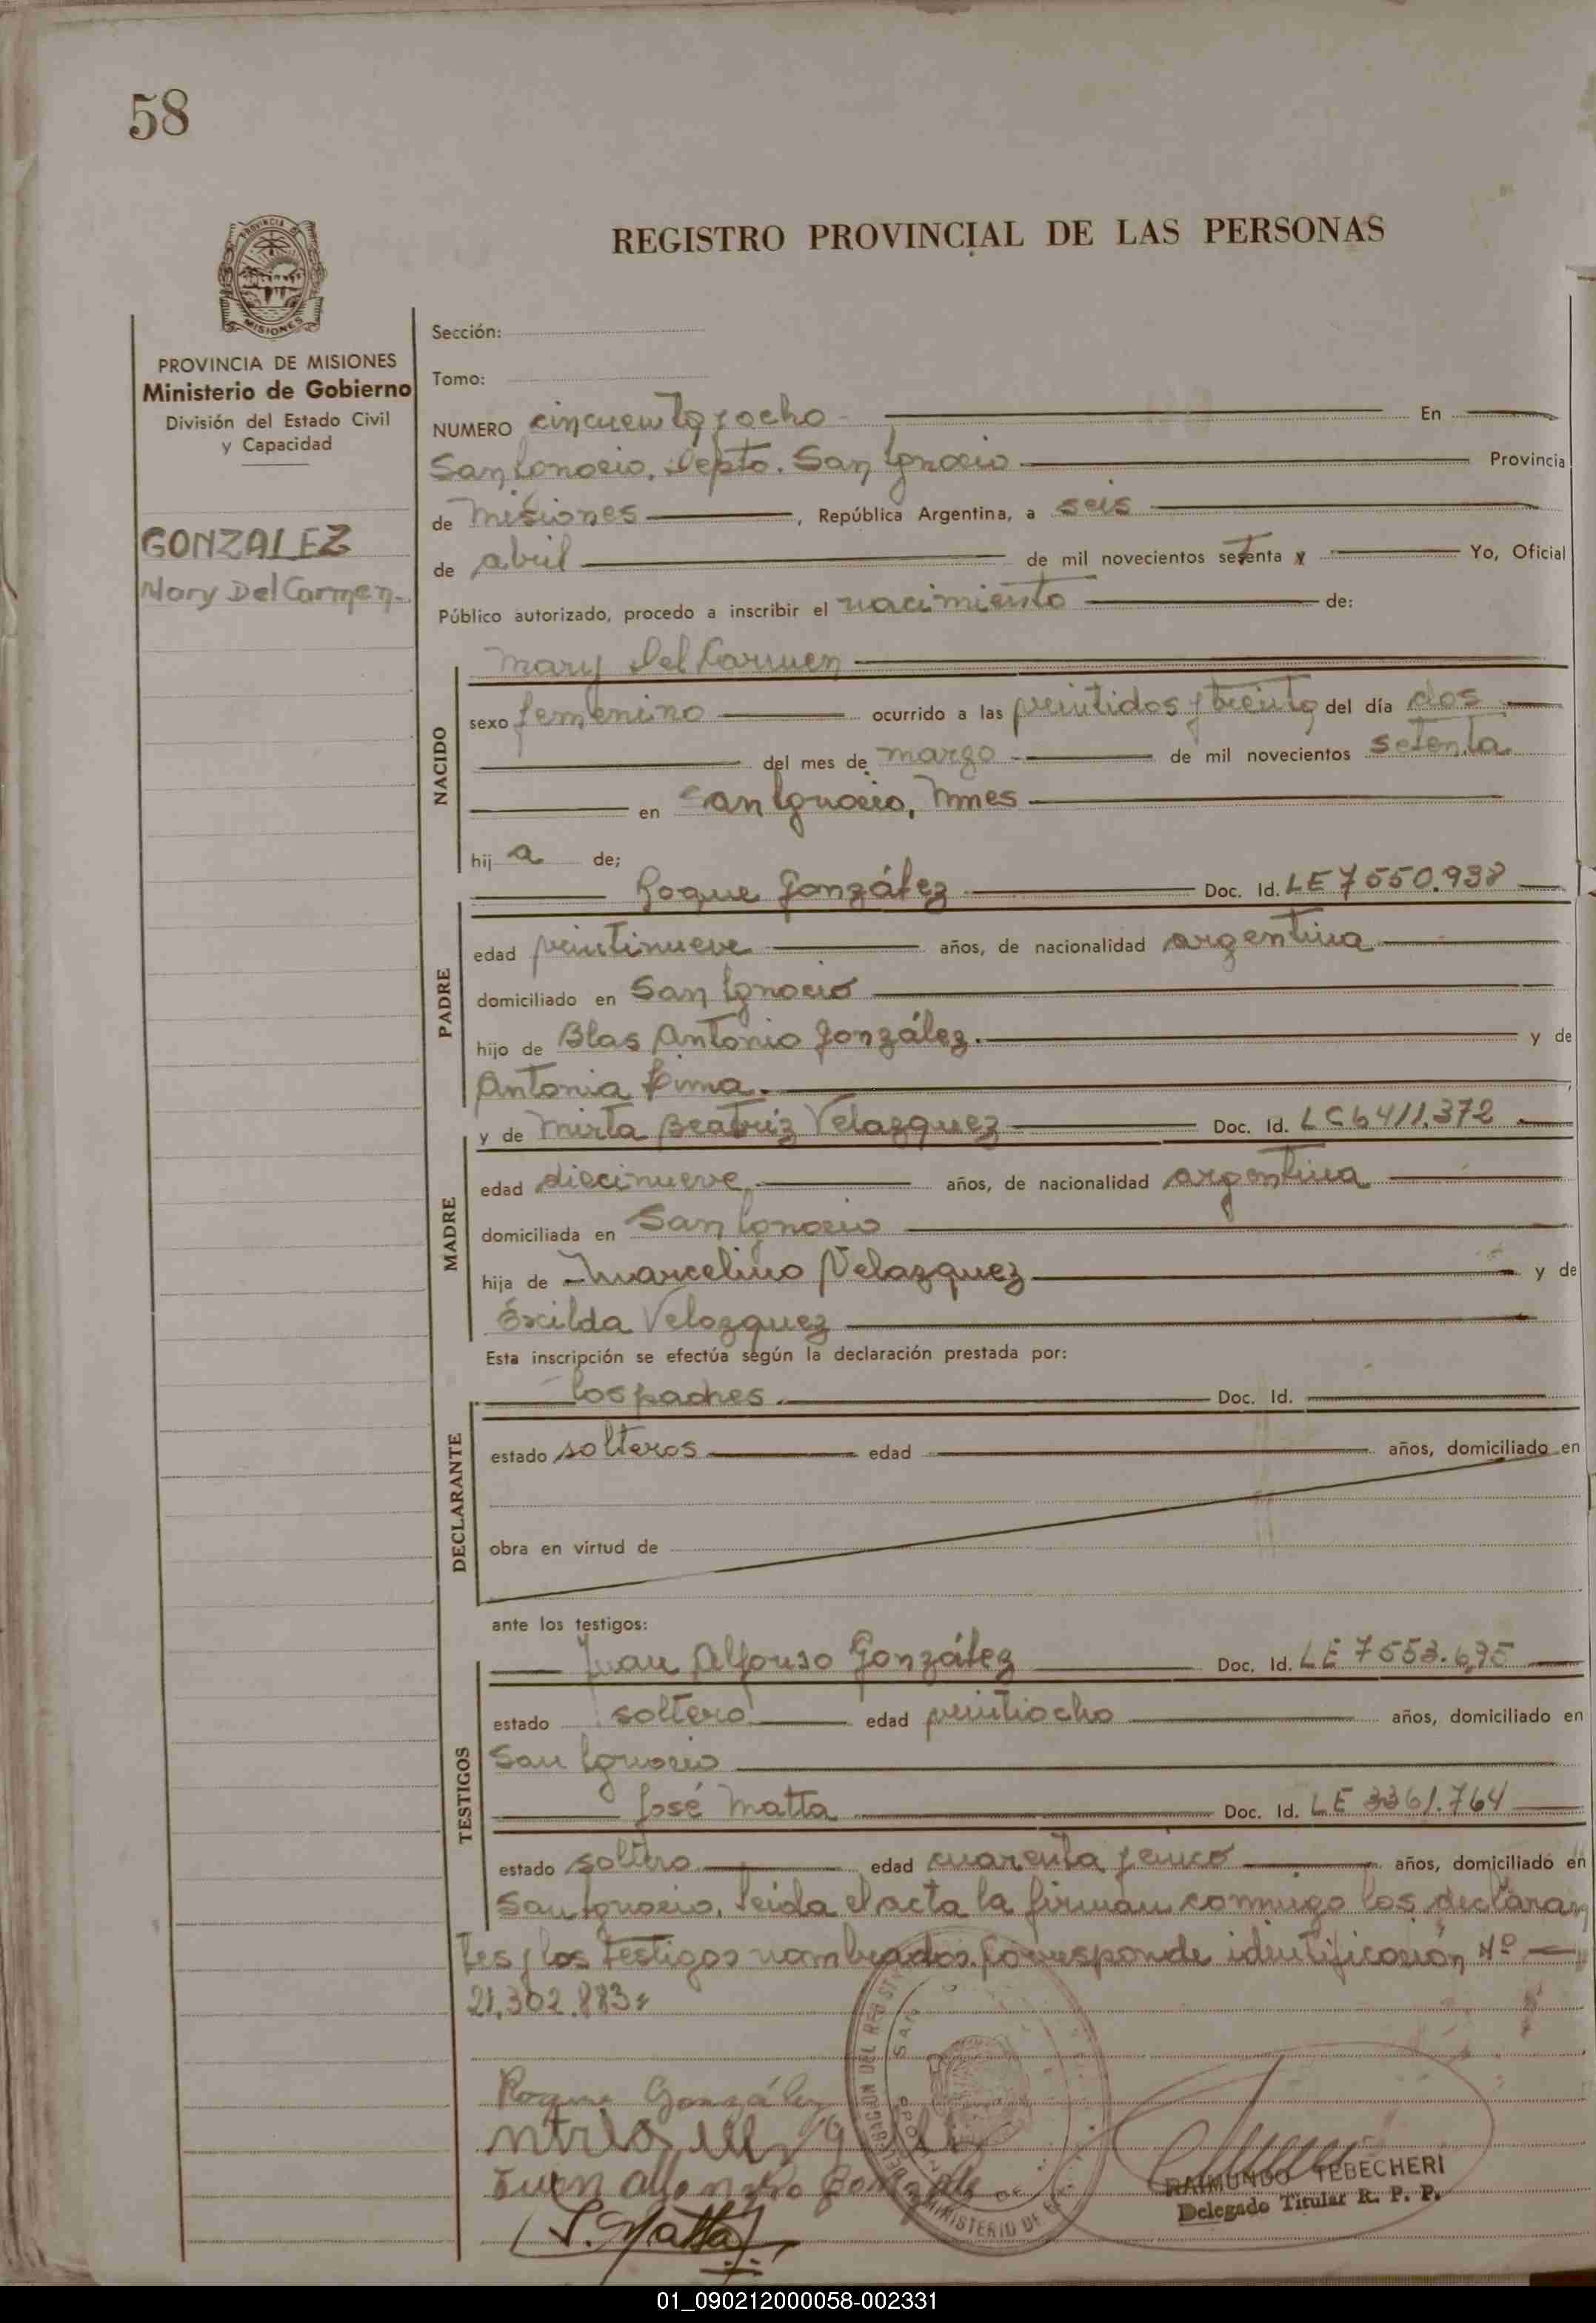 58
REGISTRO PROVINCIAL DE LAS PERSONAS
PROVINCIA DE MISIONES
Ministerio de Gobierno
División del Estado Civil
y Capacidad
GONZALEZ
Mary Del Carmen.
Sección:
Tomo:
NUMERO cincuenta y ocho En
San Ignacio, Depto. San Ignacio Provincia
de Misiones, República Argentina, a seis
de abril de mil novecientos setenta y Yo, Oficial
Público autorizado, procedo a inscribir el nacimiento de:
NACIDO
Mary Del Carmen
sexo femenino ocurrido a las veintidos y treinta del día dos
del mes de marzo de mil novecientos setenta
en San Ignacio, Mnes
hij a de:
PADRE
Roque González Doc. Id. LE 7550.938
edad veintinueve años, de nacionalidad argentina
domiciliado en San Ignacio
hijo de Blas Antonio González. y de
Antonia Lima.
MADRE
y de Mirta Beatriz Velazquez Doc. Id. LC 6411.372
edad diecinueve años, de nacionalidad argentina
domiciliada en San Ignacio
hija de Marcelino Velazquez y de
Excilda Velazquez
Esta inscripción se efectúa según la declaración prestada por:
DECLARANTE
los padres Doc. Id.
estado solteros edad años, domiciliado en
obra en virtud de
ante los testigos:
TESTIGOS
Juan Alfonso González Doc. Id. LE 7553.695
estado soltero edad veintiocho años, domiciliado en
San Ignacio
José Matta Doc. Id. LE 3361.764
estado soltero edad cuarenta y cinco años, domiciliado en
San Ignacio. Leida el acta la firman conmigo los declaran
tes y los testigos nombrados. Corresponde identificación Nº
21.302.883.
Roque González
Juan Alfonso Gonzalez
J. Matta
RAIMUNDO TEBECHERI
Delegado Titular R. P. P.
01_090212000058-002331